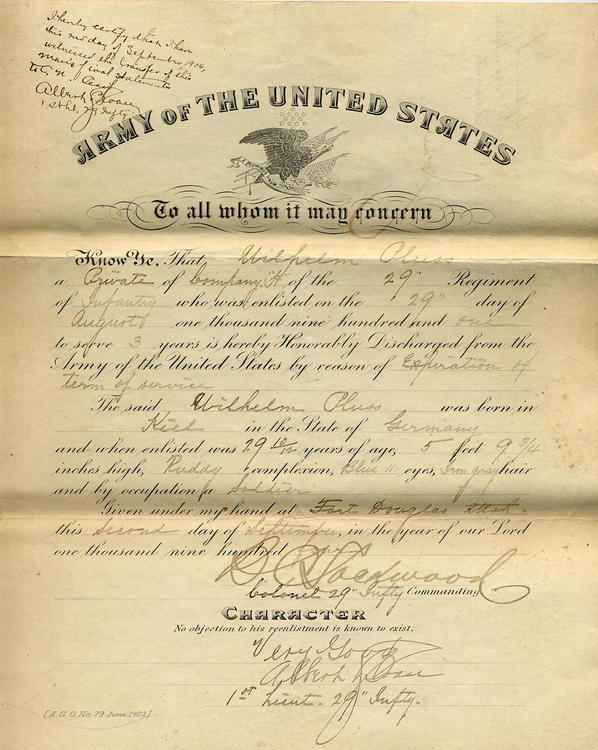 I hereby certify that I have
this 2nd day of September, 1904,
witnessed the transfer of this
man's final statements
to
Albert
1st Lt. 29 Infty
ARMY OF THE UNITED STATES
To all whom it may concern
Know Ye, That Wilhelm Pluss
a Private of Company "H" of the 29" Regiment
of Infantry who was enlisted on the 29" day of
August one thousand nine hundred and one
to serve 3 years is hereby Honorably Discharged from the
Army of the United States by reason of Expiration of
term of service
The said Wilhelm Pluss was born in
Kiel in the State of Germany
and when enlisted was 29 10/12 years of age, 5 feet 9 3/4
inches high, Ruddy complexion, Blue eyes, Iron gray hair
and by occupation a Soldier
Given under my hand at Fort Douglas Utah
this second day of September, in the year of our Lord
one thousand nine hundred
Lockwood
Colonel 29" Infty Commanding
CHARACTER
No objection to his reenlistment is known to exist.
Very Good
Albert
1st Lieut. 29" Infty.
(A.G.O. No. 79 June, 1902)